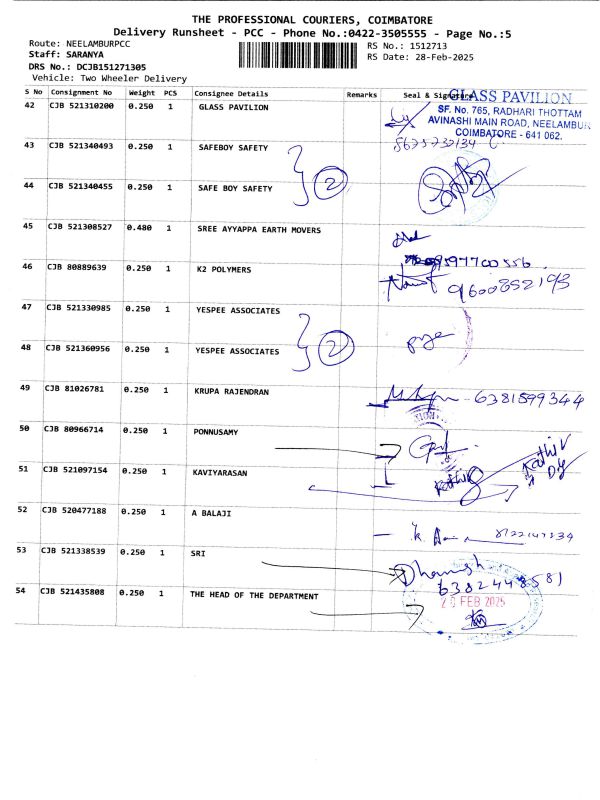 THE PROFESSIONAL COURIERS, COIMBATORE
Delivery Runsheet - PCC - Phone No.:0422-3505555 - Page No.:5
Route: NEELAMBURPCC
RS No.: 1512713
Staff: SARANYA
RS Date: 28-Feb-2025
DRS No.: DCJB151271305
Vehicle: Two Wheeler Delivery
S No Consignment No Weight PCS Consignee Details Remarks Seal & Signature
42 CJB 521310200 0.250 1 GLASS PAVILION
GLASS PAVILION
SF. No. 765, RADHARI THOTTAM
AVINASHI MAIN ROAD, NEELAMBUR
COIMBATORE - 641 062.
43 CJB 521340493 0.250 1 SAFEBOY SAFETY
2
44 CJB 521340455 0.250 1 SAFE BOY SAFETY
45 CJB 521308527 0.480 1 SREE AYYAPPA EARTH MOVERS
46 CJB 80889639 0.250 1 K2 POLYMERS
9600852193
47 CJB 521330985 0.250 1 YESPEE ASSOCIATES
2
48 CJB 521360956 0.250 1 YESPEE ASSOCIATES
49 CJB 81026781 0.250 1 KRUPA RAJENDRAN
6381599344
50 CJB 80966714 0.250 1 PONNUSAMY
51 CJB 521097154 0.250 1 KAVIYARASAN
Kathir
52 CJB 520477188 0.250 1 A BALAJI
53 CJB 521338539 0.250 1 SRI
Dhanush
6382448581
54 CJB 521435808 0.250 1 THE HEAD OF THE DEPARTMENT
FEB 2025